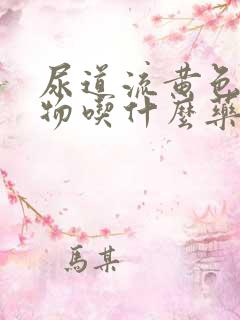 尿道流黄色
物喫什麼藥
馬某